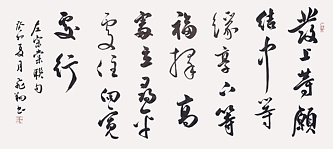 發上等願
結中等
緣享下等
福擇高
處立尋平
處住向寬
處行
左宗棠聯句
癸卯夏月